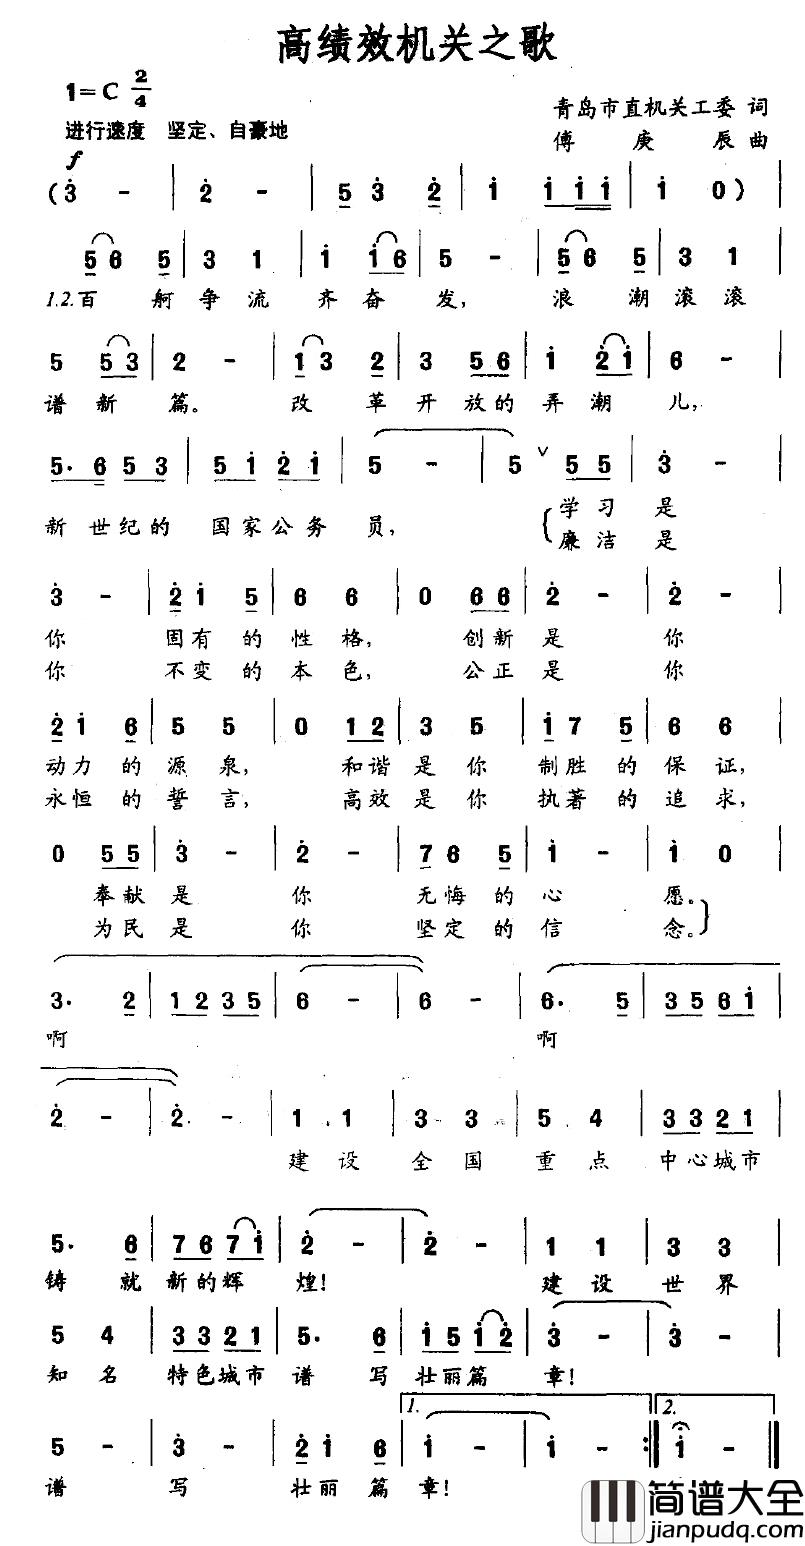 高绩效机关之歌
1=C 2/4
青岛市直机关工委 词
进行速度 坚定、自豪地
傅庚辰 曲
f
(3 - | 2 - | 5 3 2 | 1 1 1 1 | 1 0) |
5 6 5 | 3 1 | 1 1 6 | 5 - | 5 6 5 | 3 1 |
1.2.百 舸 争 流 齐 奋 发, 浪 潮 滚 滚
5 5 3 | 2 - | 1 3 2 | 3 5 6 | 1 2 1 | 6 - |
谱 新 篇。 改 革 开 放 的 弄 潮 儿,
5. 6 5 3 | 5 1 2 1 | 5 - | 5 ∨ 5 5 | 3 - |
新 世 纪 的 国 家 公 务 员, 学 习 是
廉 洁 是
3 - | 2 1 5 | 6 6 | 0 6 6 | 2 - | 2 - |
你 固 有 的 性 格, 创 新 是 你
你 不 变 的 本 色, 公 正 是 你
2 1 6 | 5 5 | 0 1 2 | 3 5 | 1 7 5 | 6 6 |
动 力 的 源 泉, 和 谐 是 你 制 胜 的 保 证,
永 恒 的 誓 言, 高 效 是 你 执 著 的 追 求,
0 5 5 | 3 - | 2 - | 7 6 5 | 1 - | 1 0 |
奉 献 是 你 无 悔 的 心 愿。
为 民 是 你 坚 定 的 信 念。
3. 2 | 1 2 3 5 | 6 - | 6 - | 6. 5 | 3 5 6 1 |
啊 啊
2 - | 2. | 1 1 | 3 3 | 5 4 | 3 3 2 1 |
建 设 全 国 重 点 中 心 城 市
5. 6 | 7 6 7 1 | 2 - | 2 - | 1 1 | 3 3 |
铸 就 新 的 辉 煌! 建 设 世 界
5 4 | 3 3 2 1 | 5. 6 | 1 5 1 2 | 3 - | 3 - |
知 名 特 色 城 市 谱 写 壮 丽 篇 章!
1. 2.
5 - | 3 - | 2 1 6 | 1 - | 1 - :| 1 - |
谱 写 壮 丽 篇 章!
简谱大全
jianpudq.com